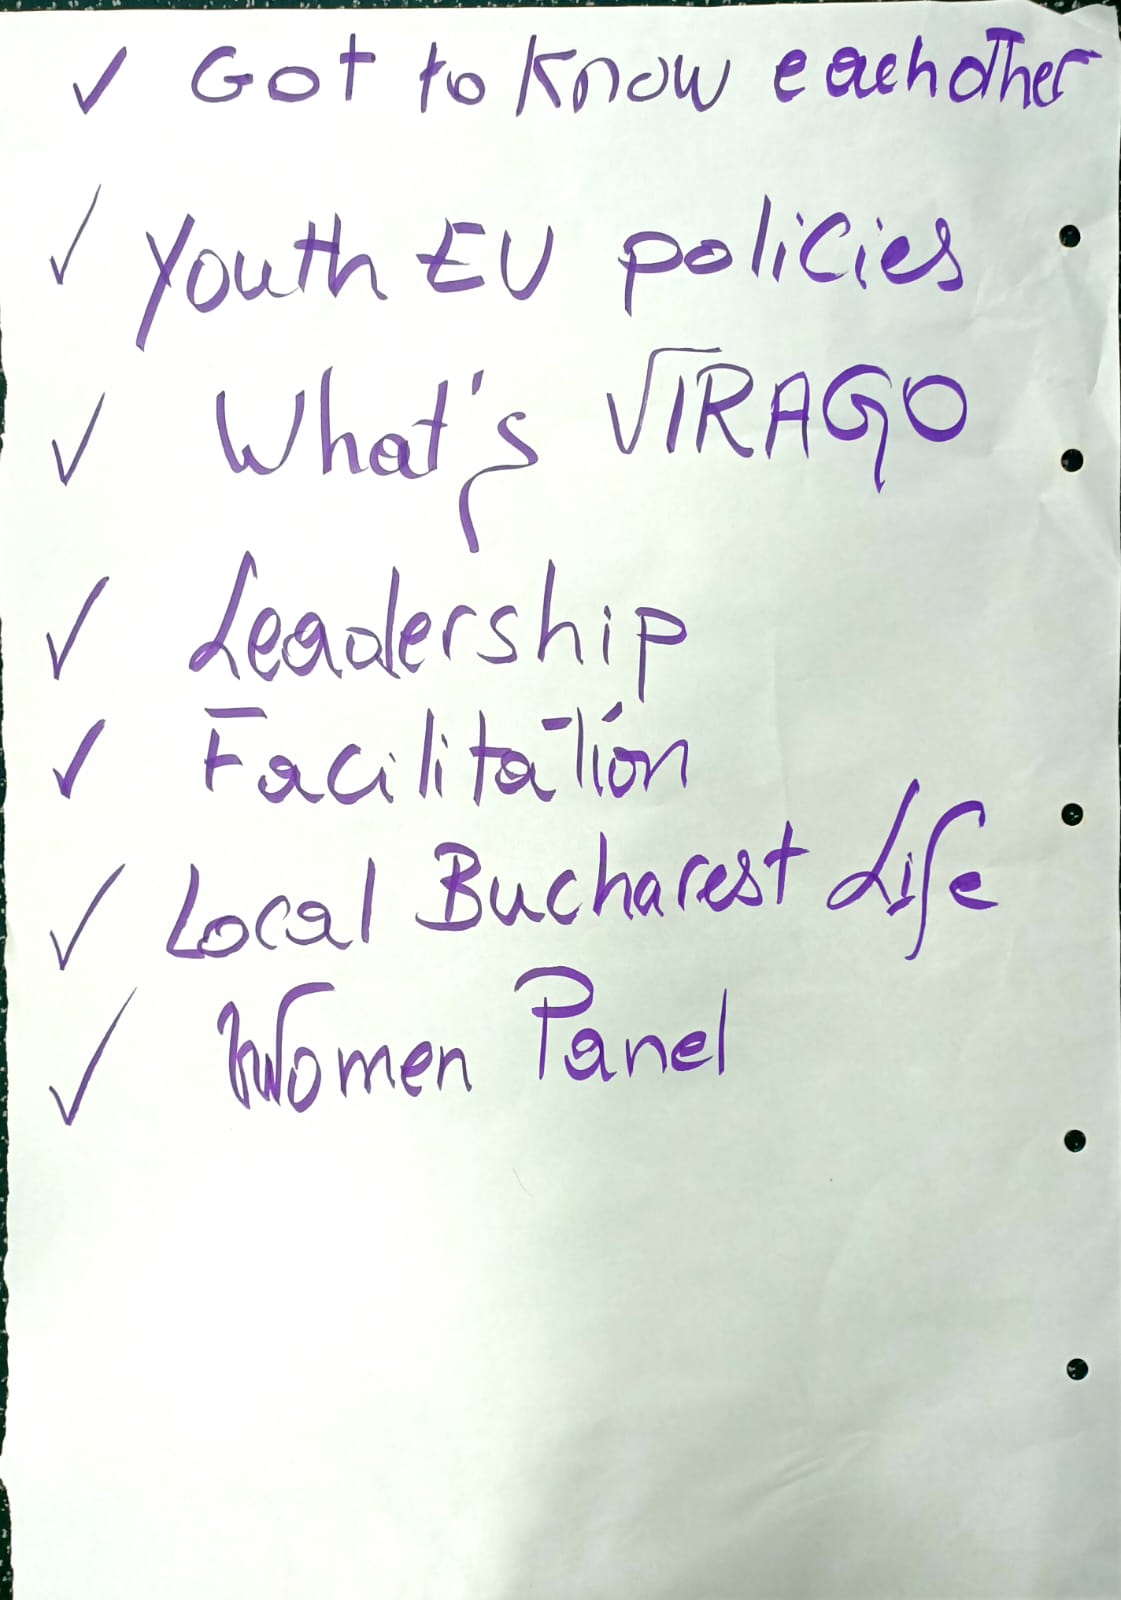 ✓ Got to know eachother
✓ Youth EU policies
✓ What's VIRAGO
✓ Leadership
✓ Facilitation
✓ Local Bucharest Life
✓ Women Panel